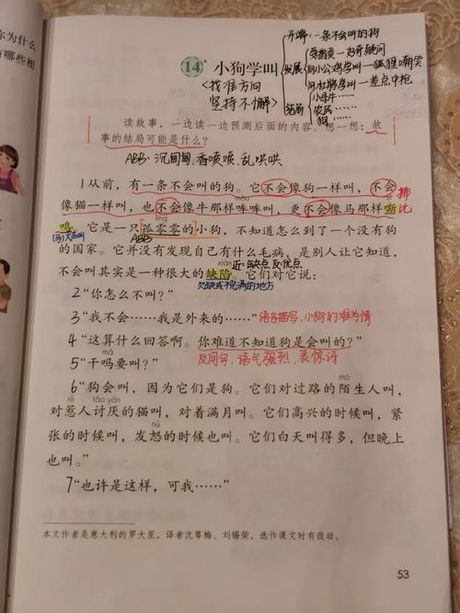 你为什么
有哪些相
14* 小狗学叫
<找准方向
坚持不懈>
开端:一条不会叫的狗
发展
向小公鸡学叫—狐狸嘲笑
向杜鹃学叫—差点中枪
结局
小母牛……
农民……
狗……
读故事，一边读一边预测后面的内容。想一想：故
事的结局可能是什么？
ABB:沉甸甸、香喷喷、乱哄哄
1从前，有一条不会叫的狗。它不会像狗一样叫，不会
像猫一样叫，也不会像牛那样哞哞叫，更不会像马那样嘶
排比
líng
鸣。它是一只孤零零的小狗，不知道怎么到了一个没有狗
(马)大声叫
ABB
的国家。它并没有发现自己有什么毛病，是别人让它知道，
xiàn
近:缺点 反:优点
不会叫其实是一种很大的缺陷。它们对它说：
欠缺或不完满的地方
2“你怎么不叫？”
3“我不会……我是外来的……”
语言描写、小狗的难为情
4“这算什么回答啊。你难道不知道狗是会叫的？”
5“干吗要叫？”
反问句、语气强烈、表惊讶
mò
6“狗会叫，因为它们是狗。它们对过路的陌生人叫，
tǎo yàn
对惹人讨厌的猫叫，对着满月叫。它们高兴的时候叫，紧
nù
张的时候叫，发怒的时候也叫。它们白天叫得多，但晚上
也叫。”
7“也许是这样，可我……”
本文作者是意大利的罗大里，译者沈萼梅、刘锡荣，选作课文时有改动。
53